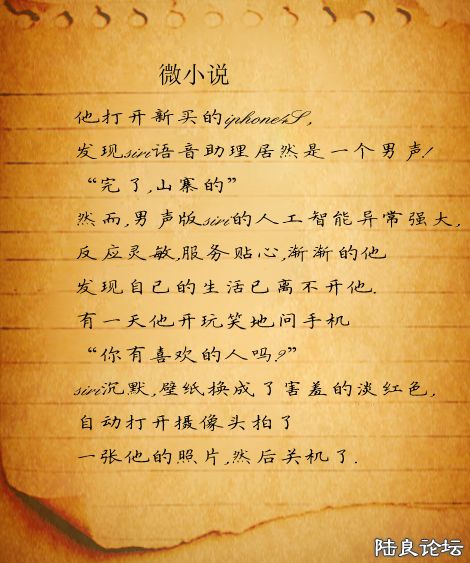 微小说
他打开新买的iphone4S,
发现siri语音助理居然是一个男声!
“完了,山寨的”
然而,男声版siri的人工智能异常强大,
反应灵敏,服务贴心,渐渐的他
发现自已的生活已离不开他.
有一天他开玩笑地问手机
“你有喜欢的人吗?”
siri沉默,壁纸换成了害羞的淡红色,
自动打开摄像头拍了
一张他的照片,然后关机了.
陆良论坛